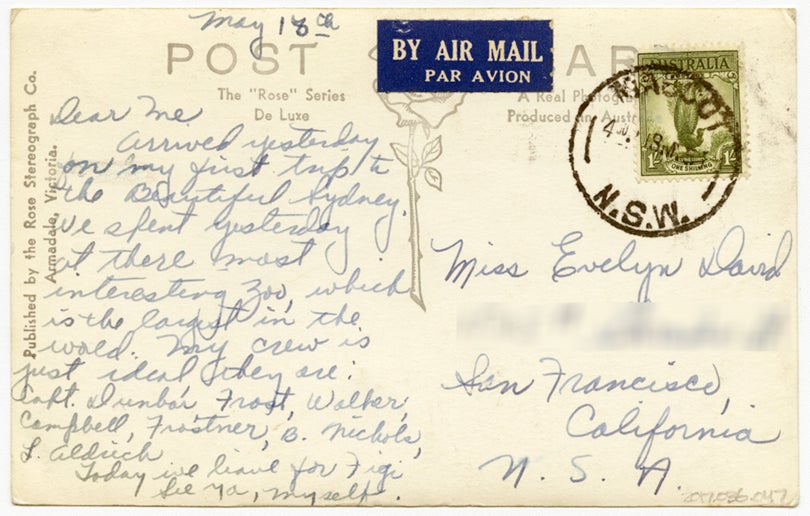 May 18th
POST CARD
BY AIR MAIL
PAR AVION
AUSTRALIA
1/-
ONE SHILLING
1/-
MASCOT
N.S.W.
The "Rose" Series
De Luxe
A Real Photogra
Produced in Austra
Published by the Rose Stereograph Co.
Armadale, Victoria.
Dear Me
Arrived yesterday
on my first trip to
the Beautiful Sydney.
We spent yesterday
at there most
interesting Zoo, which
is the largest in the
world. My crew is
just ideal, they are:
Capt. Dunbar, Frost, Walker,
Campbell, Frostner, B. Nichols,
L. Aldrich
Today we leave for Figi
See Ya, Myself.
Miss Evelyn David
San Francisco,
California
U. S. A.